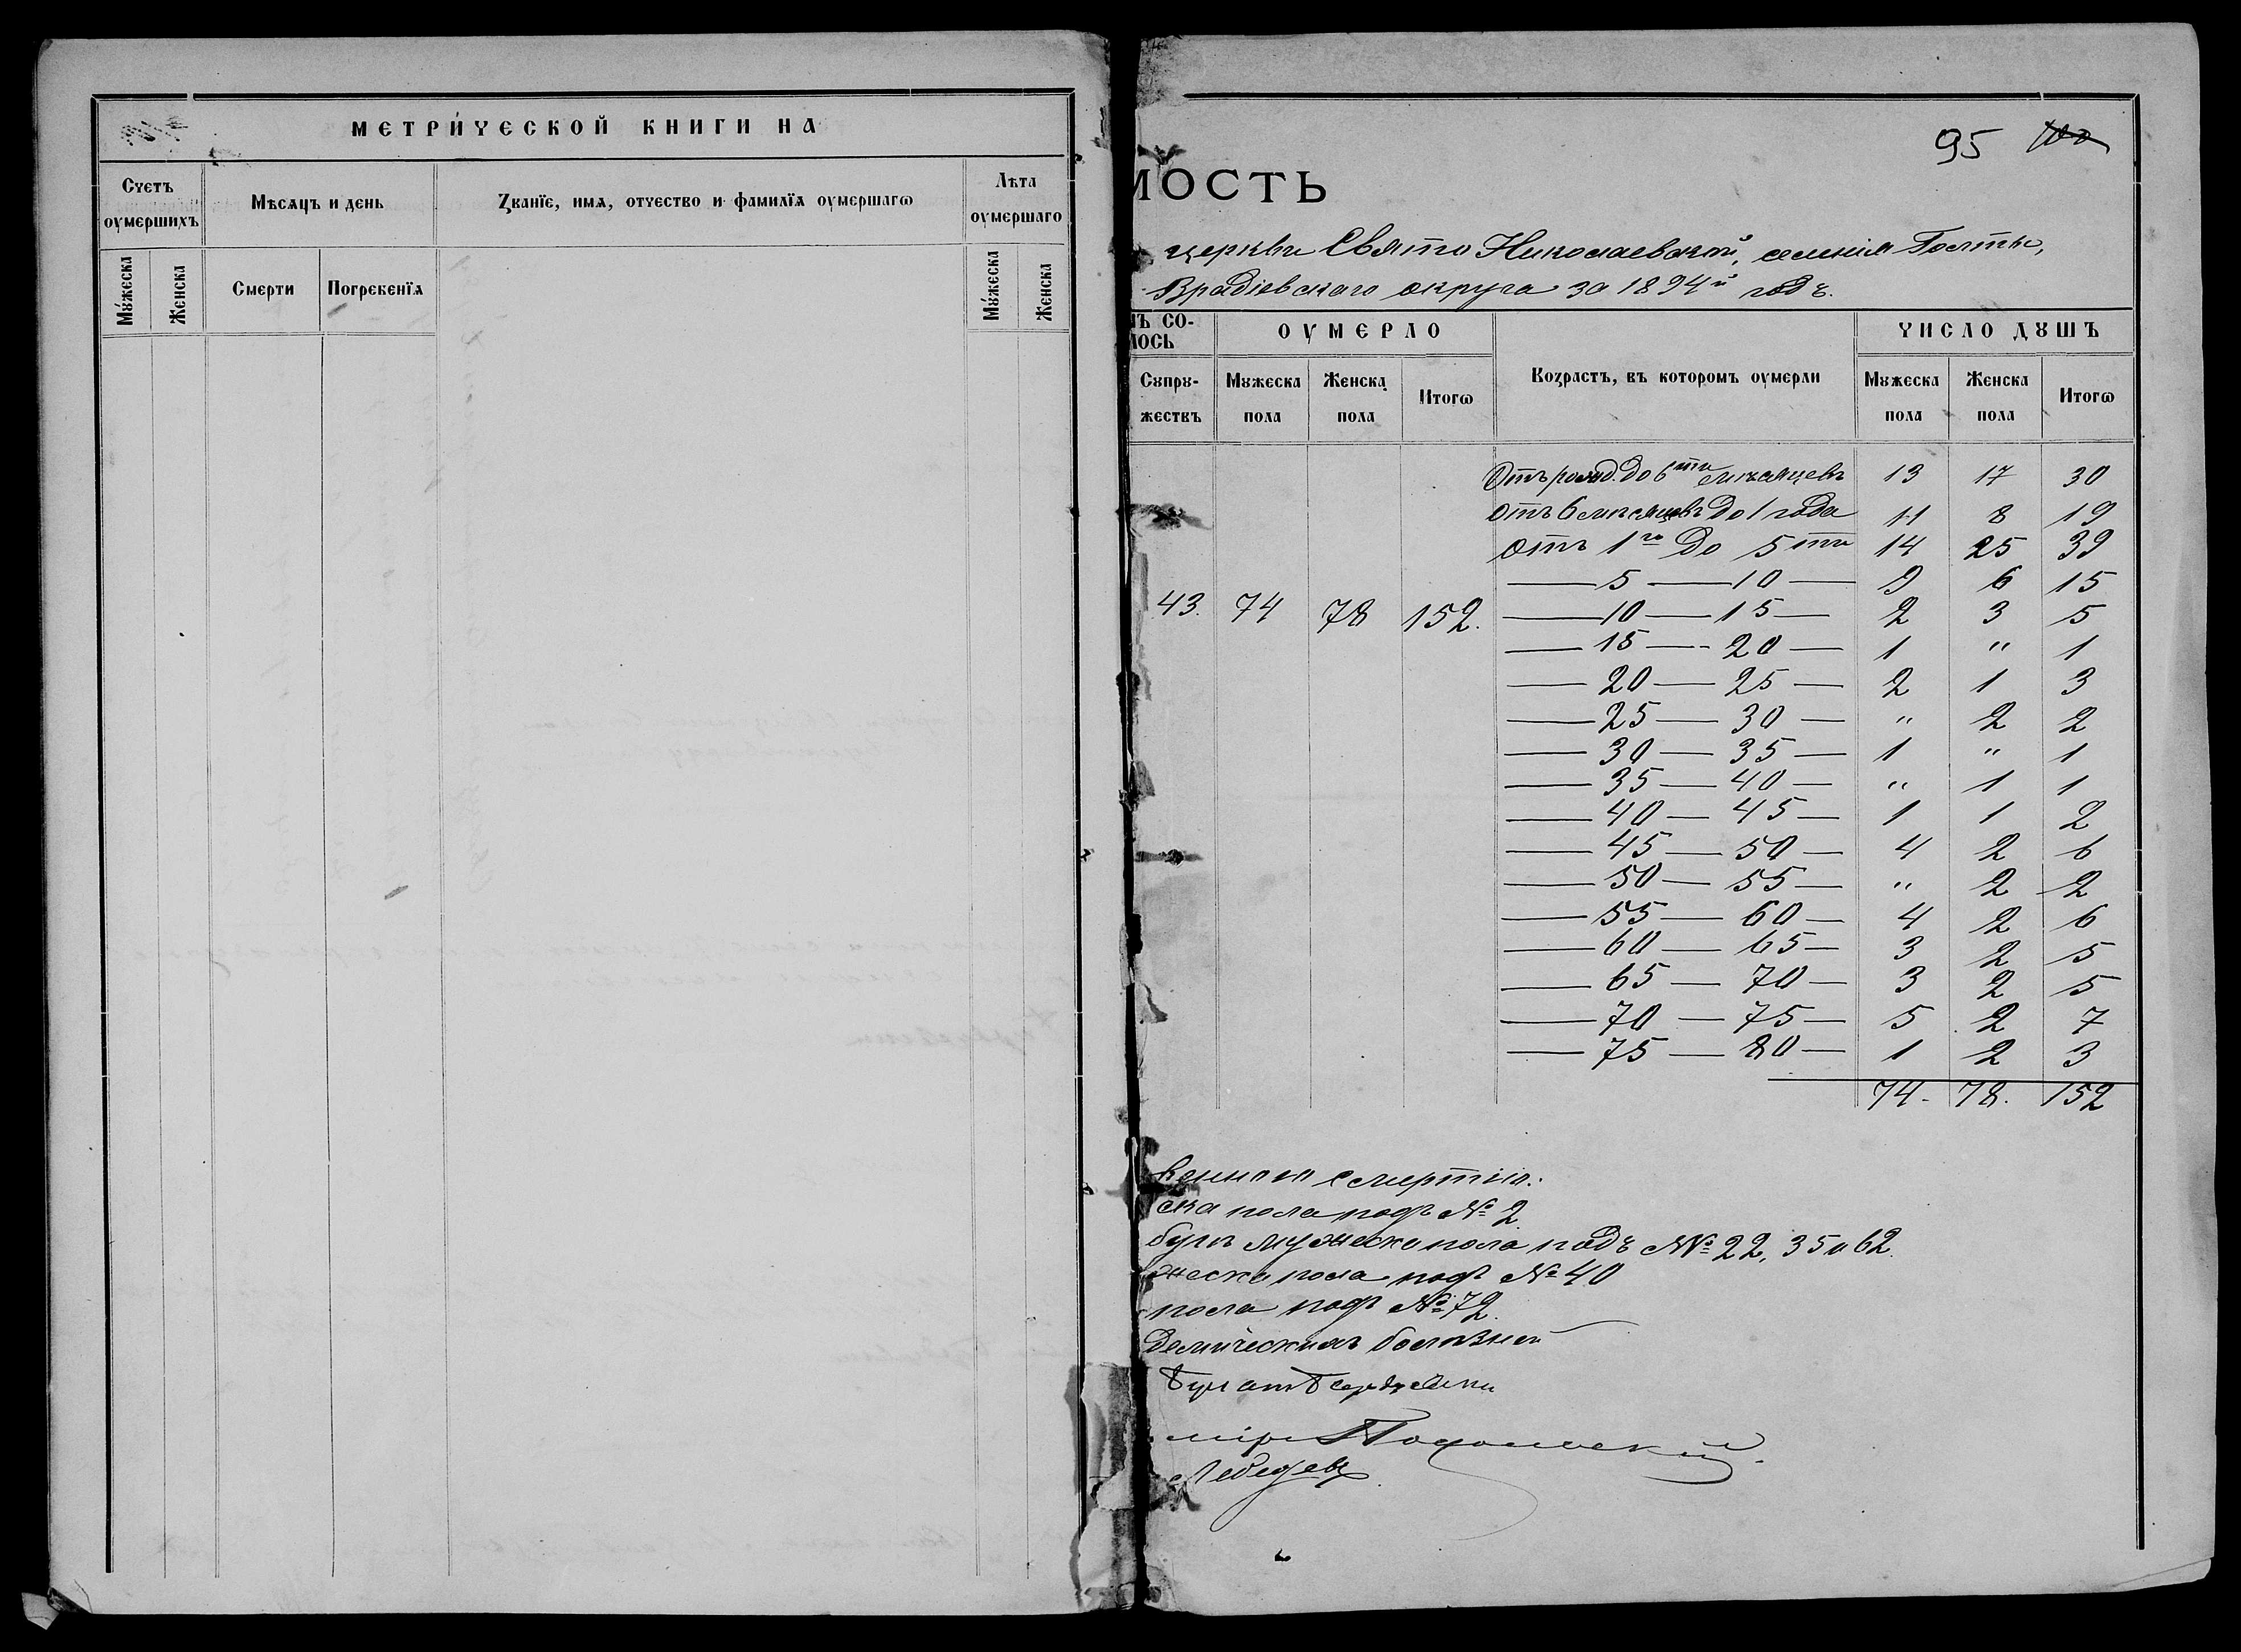 МЕТРИ́ЧЕСКОЙ КНИГИ НА
Счетъ оумершихъ
Мѣсяцъ и день
Званїе, имѧ, отчество и фамилїѧ оумершагѡ
Лѣта оумершаго
Мꙋ́жеска
Женска
Смерти
Погребенїѧ
Мꙋ́жеска
Женска
95 100
МОСТЬ
церкви Свято Николаевской, селенія Голты,
Врадіевскаго округа за 1894й годъ.
МЪ СО-
ЛОСЬ
ОУМЕРЛО
Возрастъ, въ которомъ оумерли
ЧИСЛО ДꙊШЪ
Сꙋпрꙋ-
жествъ
Мꙋжеска пола
Женска пола
Итогѡ
Мꙋжеска пола
Женска пола
Итогѡ
Отъ рожд. до 6ти мѣсяцевъ 13 17 30
Отъ 6 мѣсяцевъ до 1 года 11 8 19
Отъ 1го до 5ти 14 25 39
— 5 — 10 — 9 6 15
43. 74 78 152. — 10 — 15 — 2 3 5
— 15 — 20 — 1 " 1
— 20 — 25 — 2 1 3
— 25 — 30 — " 2 2
— 30 — 35 — 1 " 1
— 35 — 40 — " 1 1
— 40 — 45 — 1 1 2
— 45 — 50 — 4 2 6
— 50 — 55 — " 2 2
— 55 — 60 — 4 2 6
— 60 — 65 — 3 2 5
— 65 — 70 — 3 2 5
— 70 — 75 — 5 2 7
— 75 — 80 — 1 2 3
74. 78. 152
венною смертію.
ска пола подъ № 2.
мужеска пола подъ №№ 22, 35 и 62.
жеска пола подъ № 40
пола подъ № 72.
демическихъ болѣзней
Подольскій.
Лебедевъ